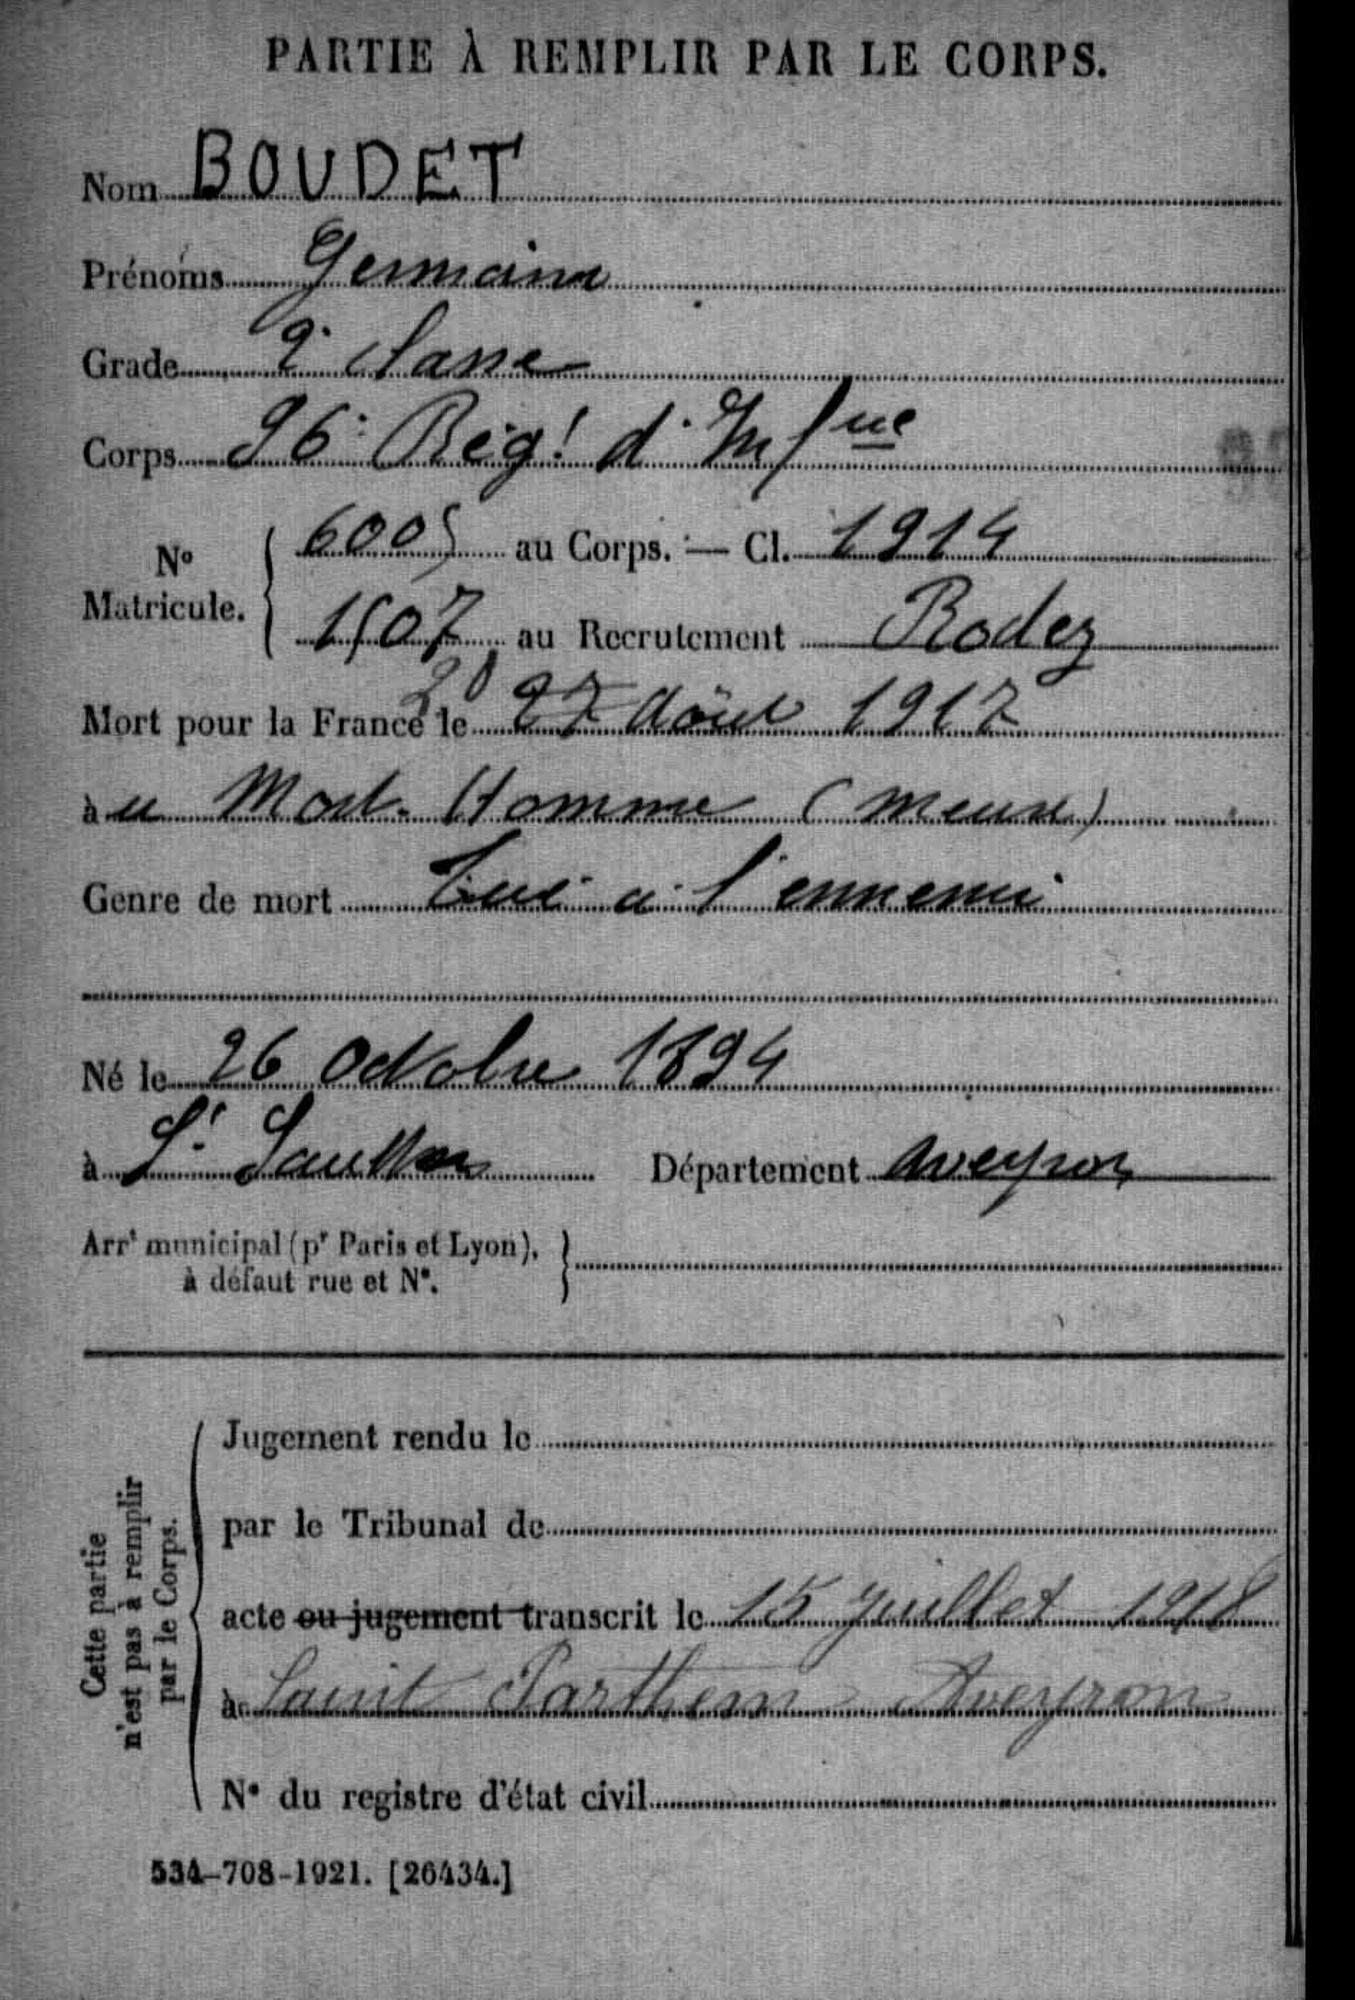 PARTIE À REMPLIR PAR LE CORPS.
Nom BOUDET
Prénoms Germain
Grade 2e classe
Corps 96e Régt d'Infrie
No Matricule. 6005 au Corps. — Cl. 1914
1507 au Recrutement Rodez
20
Mort pour la France le 27 Août 1917
au Mort-Homme (Meuse)
Genre de mort Tué à l'ennemi
Né le 26 Octobre 1894
à St Département Aveyron
Arrt municipal (pr Paris et Lyon),
à défaut rue et No.
Cette partie
n'est pas à remplir
par le Corps.
Jugement rendu le
par le Tribunal de
acte ou jugement transcrit le 15 Juillet 1918
à Saint Parthem Aveyron
No du registre d'état civil
534-708-1921. [26434.]